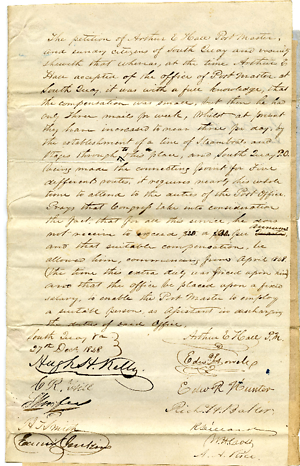 The petition of Arthur E Hall Post Master,
and sundry citizens of South Quay and vicinity
sheweth that whereas, at the time Arthur E
Hall accepted of the office of Post Master at
South Quay, it was with a full knowledge, that
the compensation was small, but then he had
one three mails per week, whilst at present
they have increased to near three per day; by
the establishment of a line of Steamboats and
stages through to this place, and South Quay
being made the connecting point for four
different routes, it requires nearly his whole
time to attend to the duties of the Post Office
Prays that Congress take into consideration
the fact, that for all this service he does
not receive to exceed per annum
and that suitable compensation be
allowed him, commencing from April 1838
(the time this extra duty was forced upon him)
and that the office be placed upon a fixed
salary, to enable the Post Master to employ
a suitable person as assistant in discharging
the duties of said Office.
South Quay Va
27th Decr 1838
Arthur E Hall P.M.
Hugh H Kelly
Edwd R Hunter
A. A. Rice